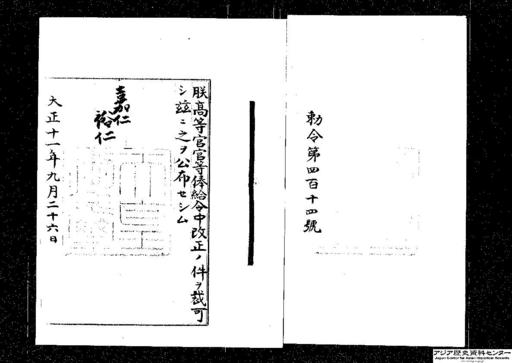 勅令第四百十四號
朕高等官官等俸給令中改正ノ件ヲ裁可
シ茲ニ之ヲ公布セシム
嘉仁
裕仁
大正十一年九月二十六日
アジア歴史資料センター
Japan Center for Asian Historical Records